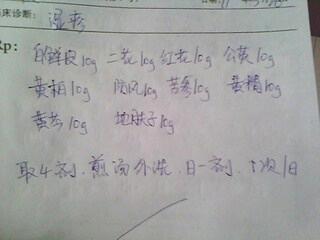 临床诊断: 湿疹
Rp:
白鲜皮10g 二花10g 红花10g 公英10g
黄柏10g 防风10g 苦参10g 黄精10g
黄芩10g 地肤子10g
取4剂、煎汤外洗、日一剂、1次/日